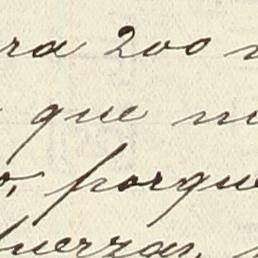 ra 200
que
porque
fuerzas,